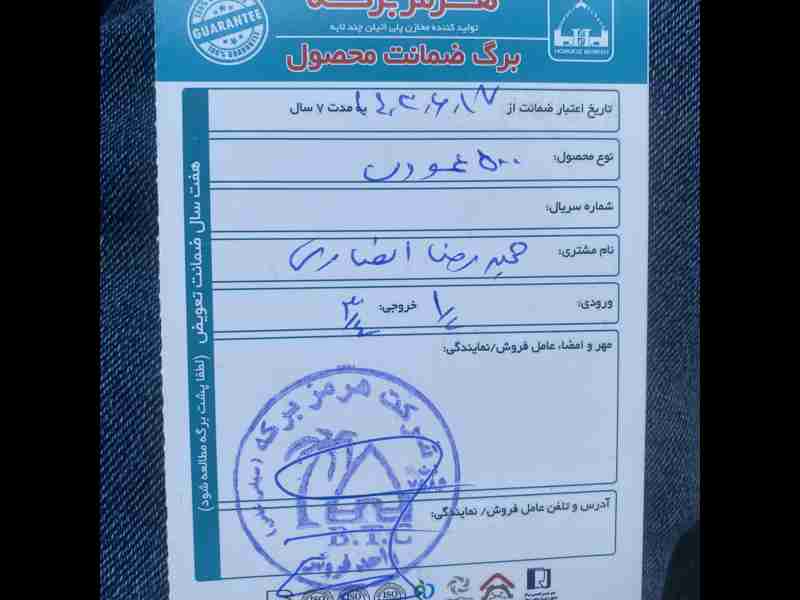 GUARANTEE
هرمز برکه
HORMOZ BERKEH
تولید کننده مخازن پلی اتیلن چند لایه
برگ ضمانت محصول
تاریخ اعتبار ضمانت از ۱۴۰۳,۶,۱۷ به مدت ۷ سال
نوع محصول: ۵۰۰ عمودی
شماره سریال:
نام مشتری: حمید رضا انصاری
ورودی: ۱/۲ خروجی: ۳/۴
مهر و امضاء عامل فروش/نمایندگی:
شرکت هرمز برکه
B.T.C
واحد فروش
آدرس و تلفن عامل فروش/ نمایندگی:
هفت سال ضمانت تعویض (لطفا پشت برگه مطالعه شود)
ISO ISO ISO